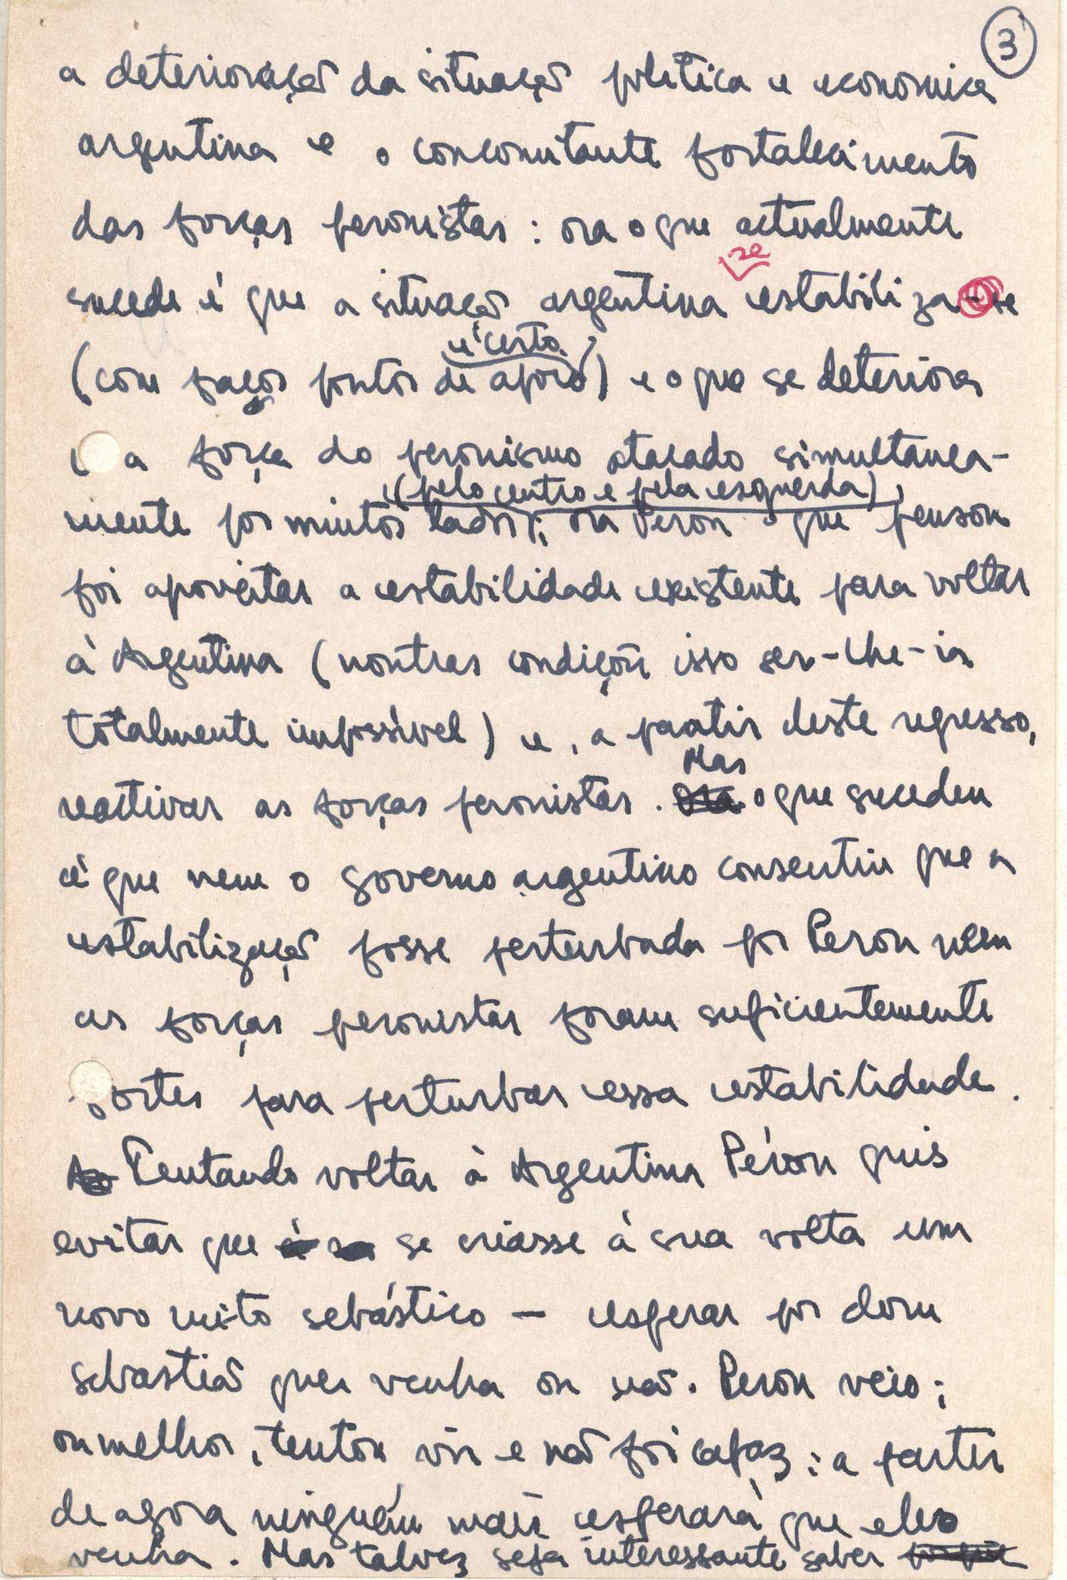 3
a deterioração da situação politica e economica
argentina e o concomitante fortalecimento
das forças peronistas : ora o que actualmente
se
sucede é que a situação argentina estabiliza-se
é certo
(com fracos pontos de apoio) e o que se deteriora
é a força do peronismo atacado simultanea-
(pelo centro e pela esquerda)
mente por muitos lados; ora Peron o que pensou
foi aproveitar a estabilidade existente para voltar
à Argentina (noutras condições isso ser-lhe-ia
totalmente impossivel) e, a partir deste regresso,
Mas
reactivar as forças peronistas. Ora o que sucedeu
é que nem o governo argentino consentiu que a
estabilização fosse perturbada por Peron nem
as forças peronistas foram suficientemente
fortes para perturbar essa estabilidade.
Tentando voltar à Argentina Péron quis
evitar que se criasse à sua volta um
novo mito sebástico — esperar por dom
sebastião quer venha ou não. Peron veio;
ou melhor, tentou vir e não foi capaz; : a partir
de agora ninguém mais esperará que ele
venha. Mas talvez seja interessante saber